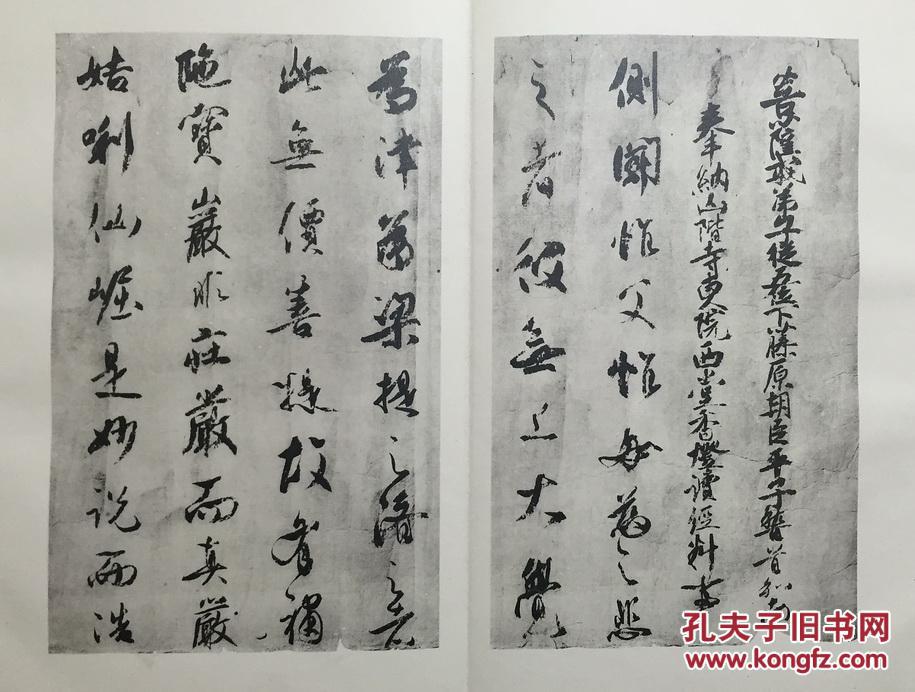 菩薩戒弟子從五位下藤原朝臣平子誓首和南
奉納山階寺東院西堂香燈讀經料事
側聞惟父惟母為之悲
之者役無上大覺
為津為梁提之濟之者
此無價善根故有補
陁寶嚴非莊嚴而真嚴
姑唎仙崛是妙說而湛
孔夫子旧书网
www.kongfz.com